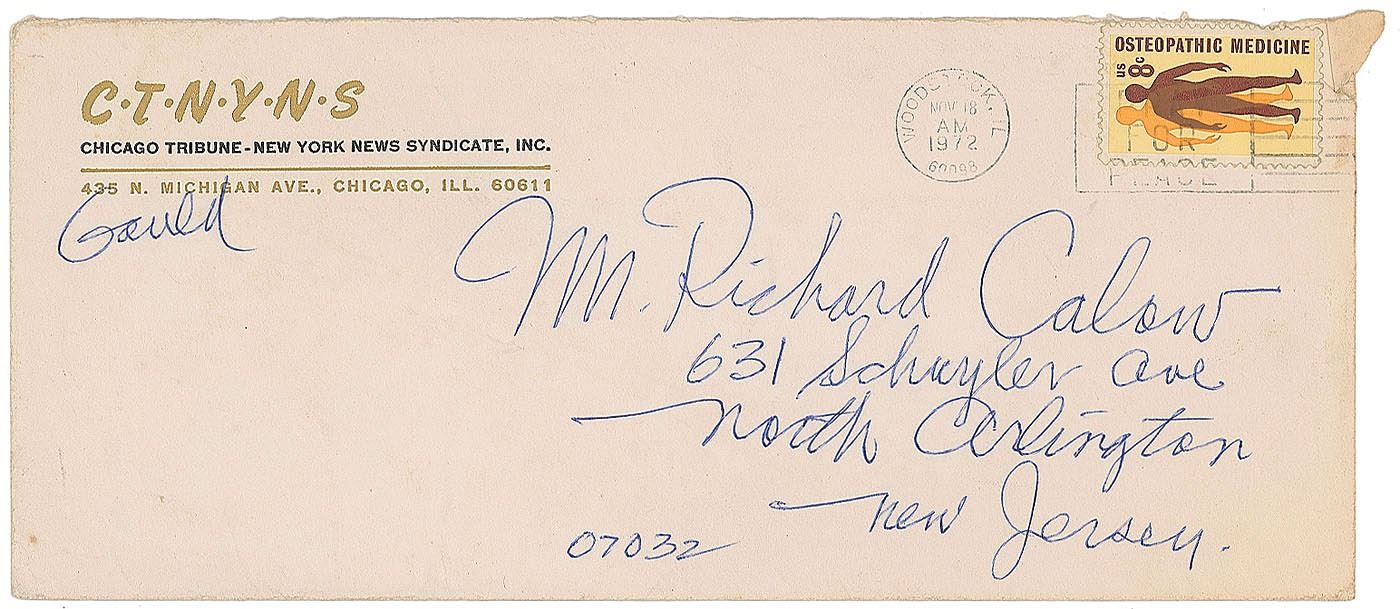 C·T·N·Y·N·S
CHICAGO TRIBUNE-NEW YORK NEWS SYNDICATE, INC.
435 N. MICHIGAN AVE., CHICAGO, ILL. 60611
Gould
WOODSTOCK, IL
NOV 18
AM
1972
60098
OSTEOPATHIC MEDICINE
US 8c
FOR
PEACE
Mr. Richard Calow
631 Schuyler Ave
North Arlington
New Jersey.
07032